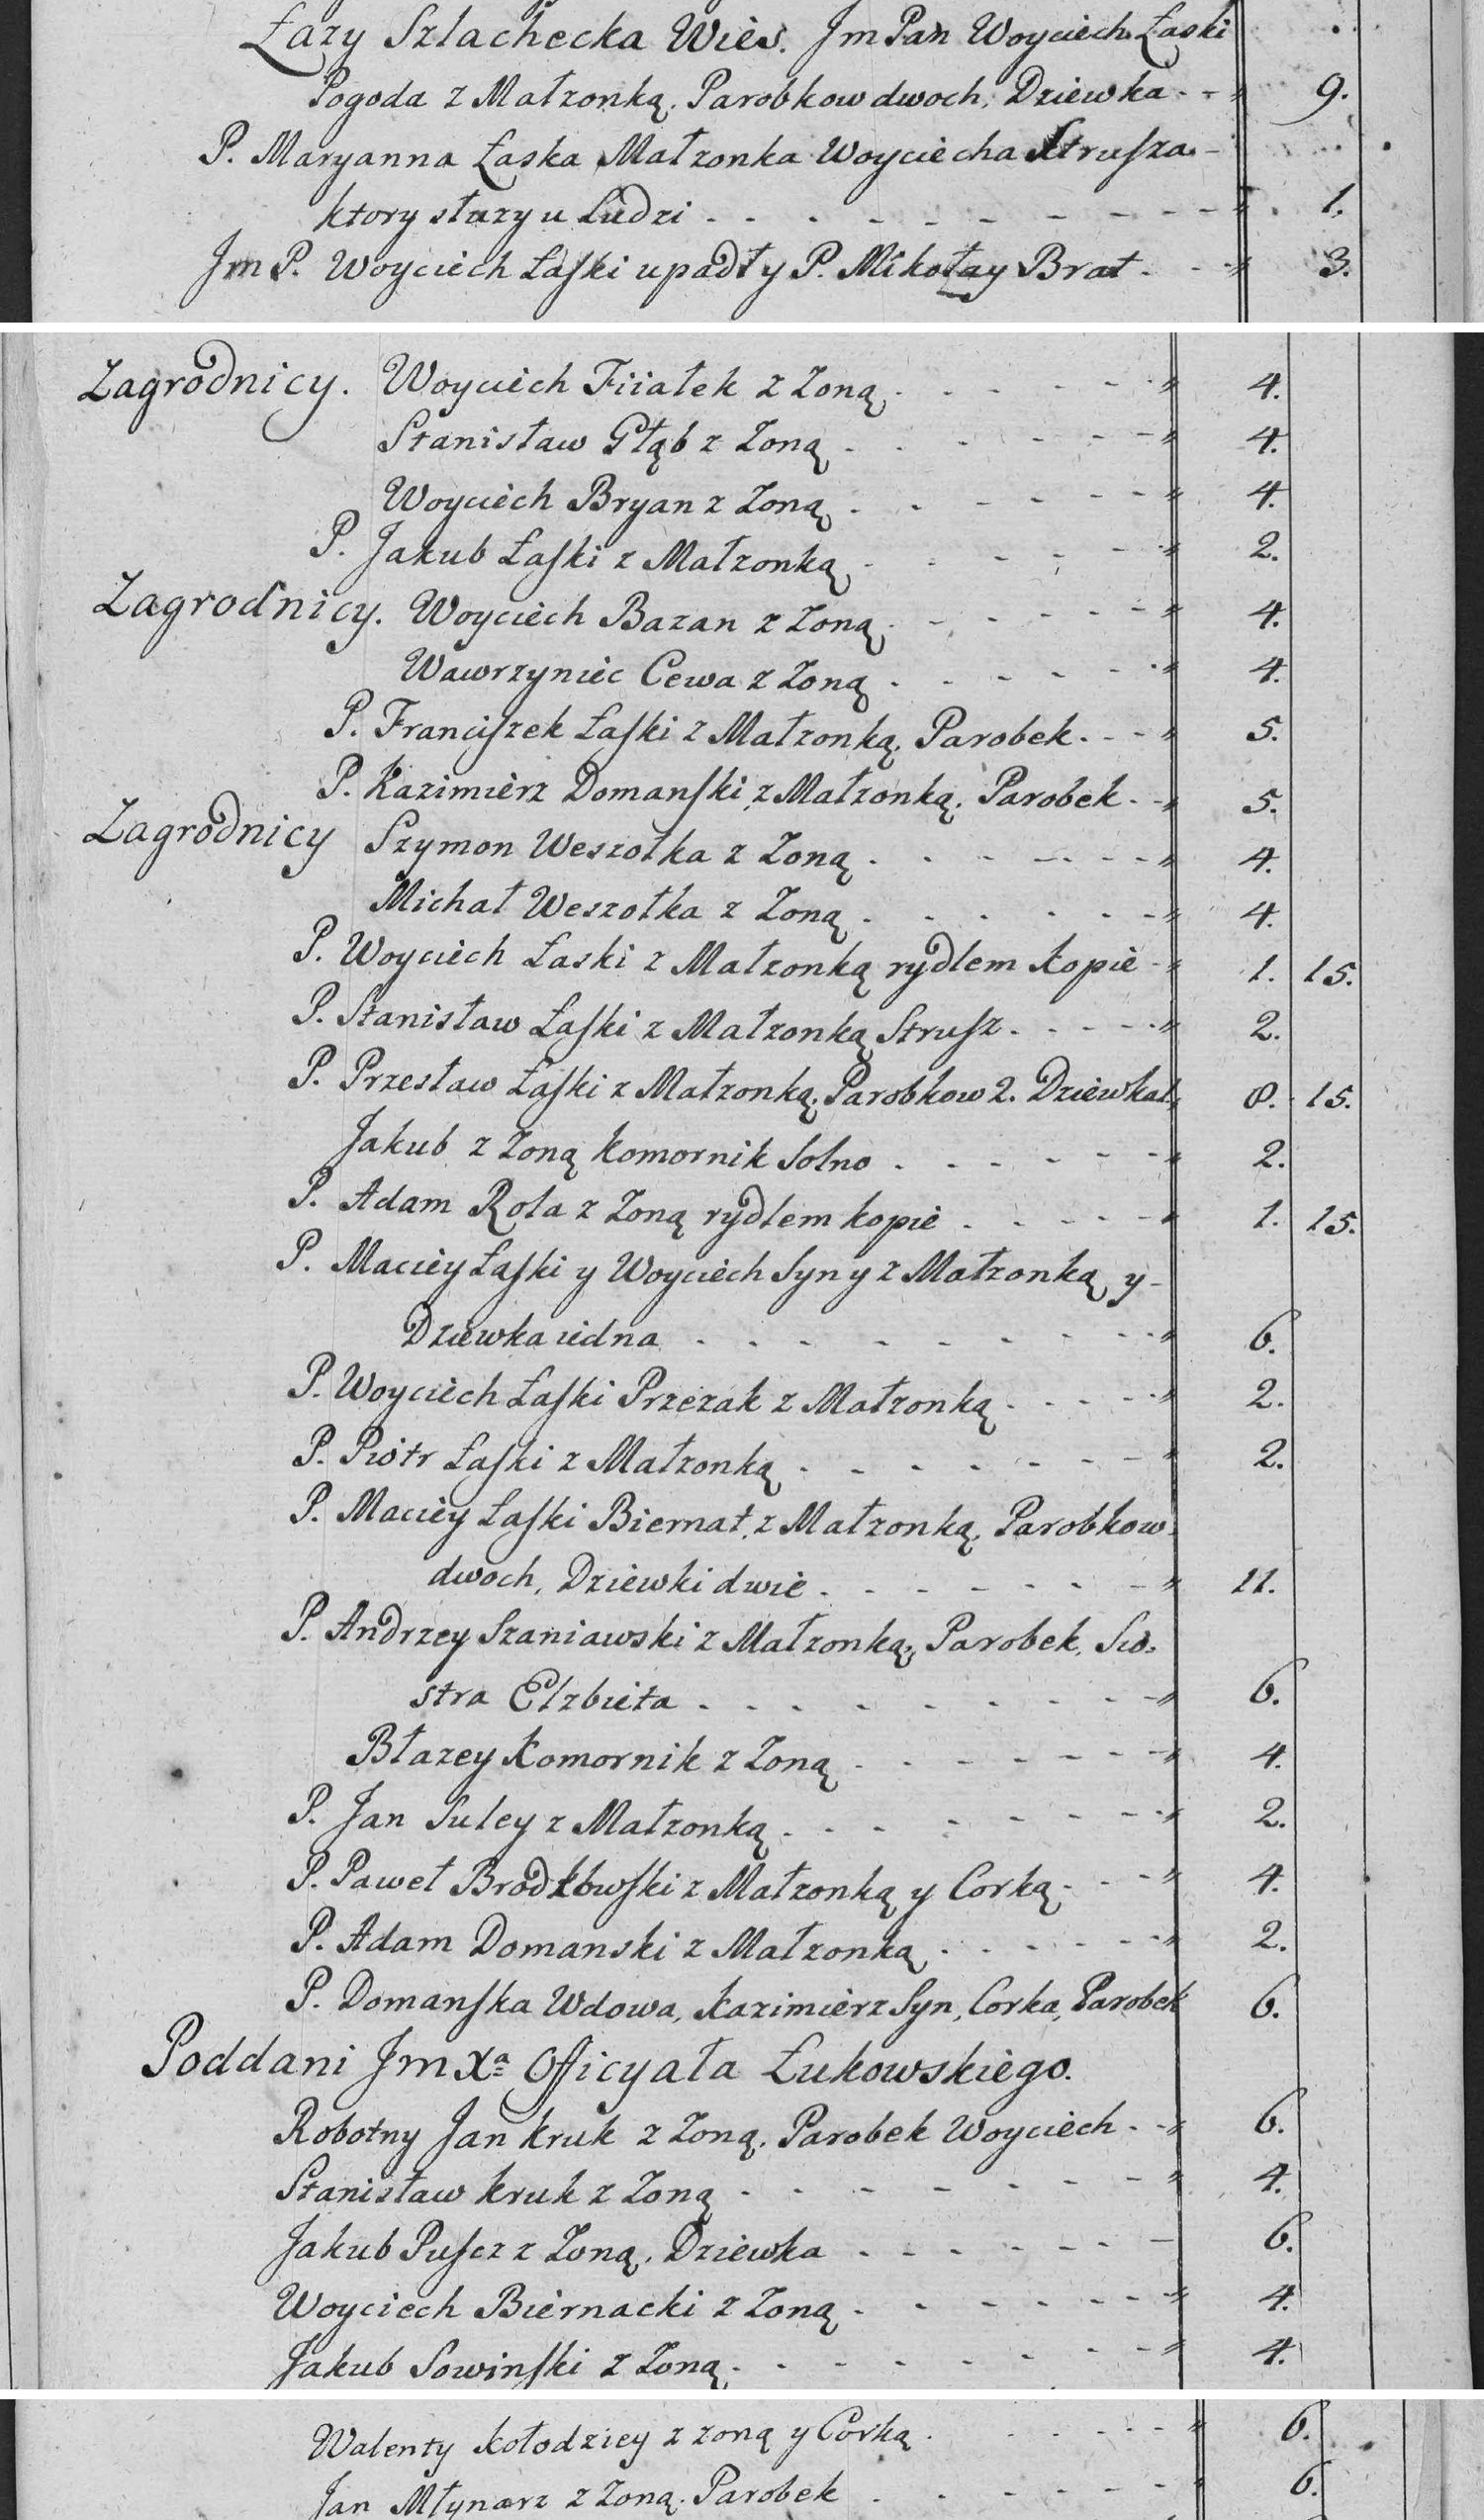 Łazy Szlachecka Wies. Jm Pan Woyciech Łaski
Pogoda z Małzonką. Parobkow dwoch, Dziewka - - " 9.
P. Maryanna Łaska Małzonka Woyciecha Strusza -
ktory słuzy u Ludzi - - - - - - - - - " 1.
Jm P. Woyciech Łaski upadły P. Mikołay Brat - - " 3.
Zagrodnicy. Woyciech Fiiałek z Zoną - - - - - " 4.
Stanisław Głąb z Zoną - - - - - - " 4.
Woyciech Bryan z Zoną - - - - - - " 4.
P. Jakub Łaski z Małzonką - - - - - " 2.
Zagrodnicy. Woyciech Bazan z Zoną - - - - - " 4.
Wawrzyniec Cewa z Zoną - - - - - " 4.
P. Franciszek Łaski z Małzonką, Parobek - - - " 5.
P. Kazimierz Domanski z Małzonką. Parobek - - " 5.
Zagrodnicy Szymon Weszołka z Zoną - - - - - - " 4.
Michał Weszołka z Zoną - - - - - - " 4.
P. Woyciech Łaski z Małzonką rydlem kopie - " 1. 15.
P. Stanisław Łaski z Małzonką Strusz - - - - " 2.
P. Przesław Łaski z Małzonką. Parobkow 2. Dziewka 1. " 8. 15.
Jakub z Zoną komornik Solno - - - - - - " 2.
P. Adam Rola z Zoną rydlem kopie - - - - - " 1. 15.
P. Maciey Łaski y Woyciech Syn y z Małzonką y -
Dziewka iedna - - - - - - - - - " 6.
P. Woyciech Łaski Przezak z Małzonką - - - - " 2.
P. Piotr Łaski z Małzonką - - - - - - - " 2.
P. Maciey Łaski Biernat, z Małzonką, Parobkow
dwoch, Dziewki dwie - - - - - - - " 11.
P. Andrzey Szaniawski z Małzonką, Parobek, Sio-
stra Elzbieta - - - - - - - - - " 6.
Błazey Komornik z Zoną - - - - - - " 4.
P. Jan Suley z Małzonką - - - - - - - " 2.
P. Paweł Brodkowski z Małzonką y Corką - - - " 4.
P. Adam Domanski z Małzonką - - - - - - " 2.
P. Domanska Wdowa, Kazimierz Syn, Corka, Parobek 6.
Poddani Jm Xa Officyała Łukowskiego.
Robotny Jan Kruk z Zoną. Parobek Woyciech - - " 6.
Stanisław Kruk z Zoną - - - - - - - - " 4.
Jakub Puscz z Zoną, Dziewka - - - - - - - 6.
Woyciech Biernacki z Zoną - - - - - - " 4.
Jakub Sowinski z Zoną - - - - - - - - " 4.
Walenty Kołodziey z zoną y Corką - - - - - " 6.
Jan Młynarz z Zoną. Parobek - - - - - - " 6.